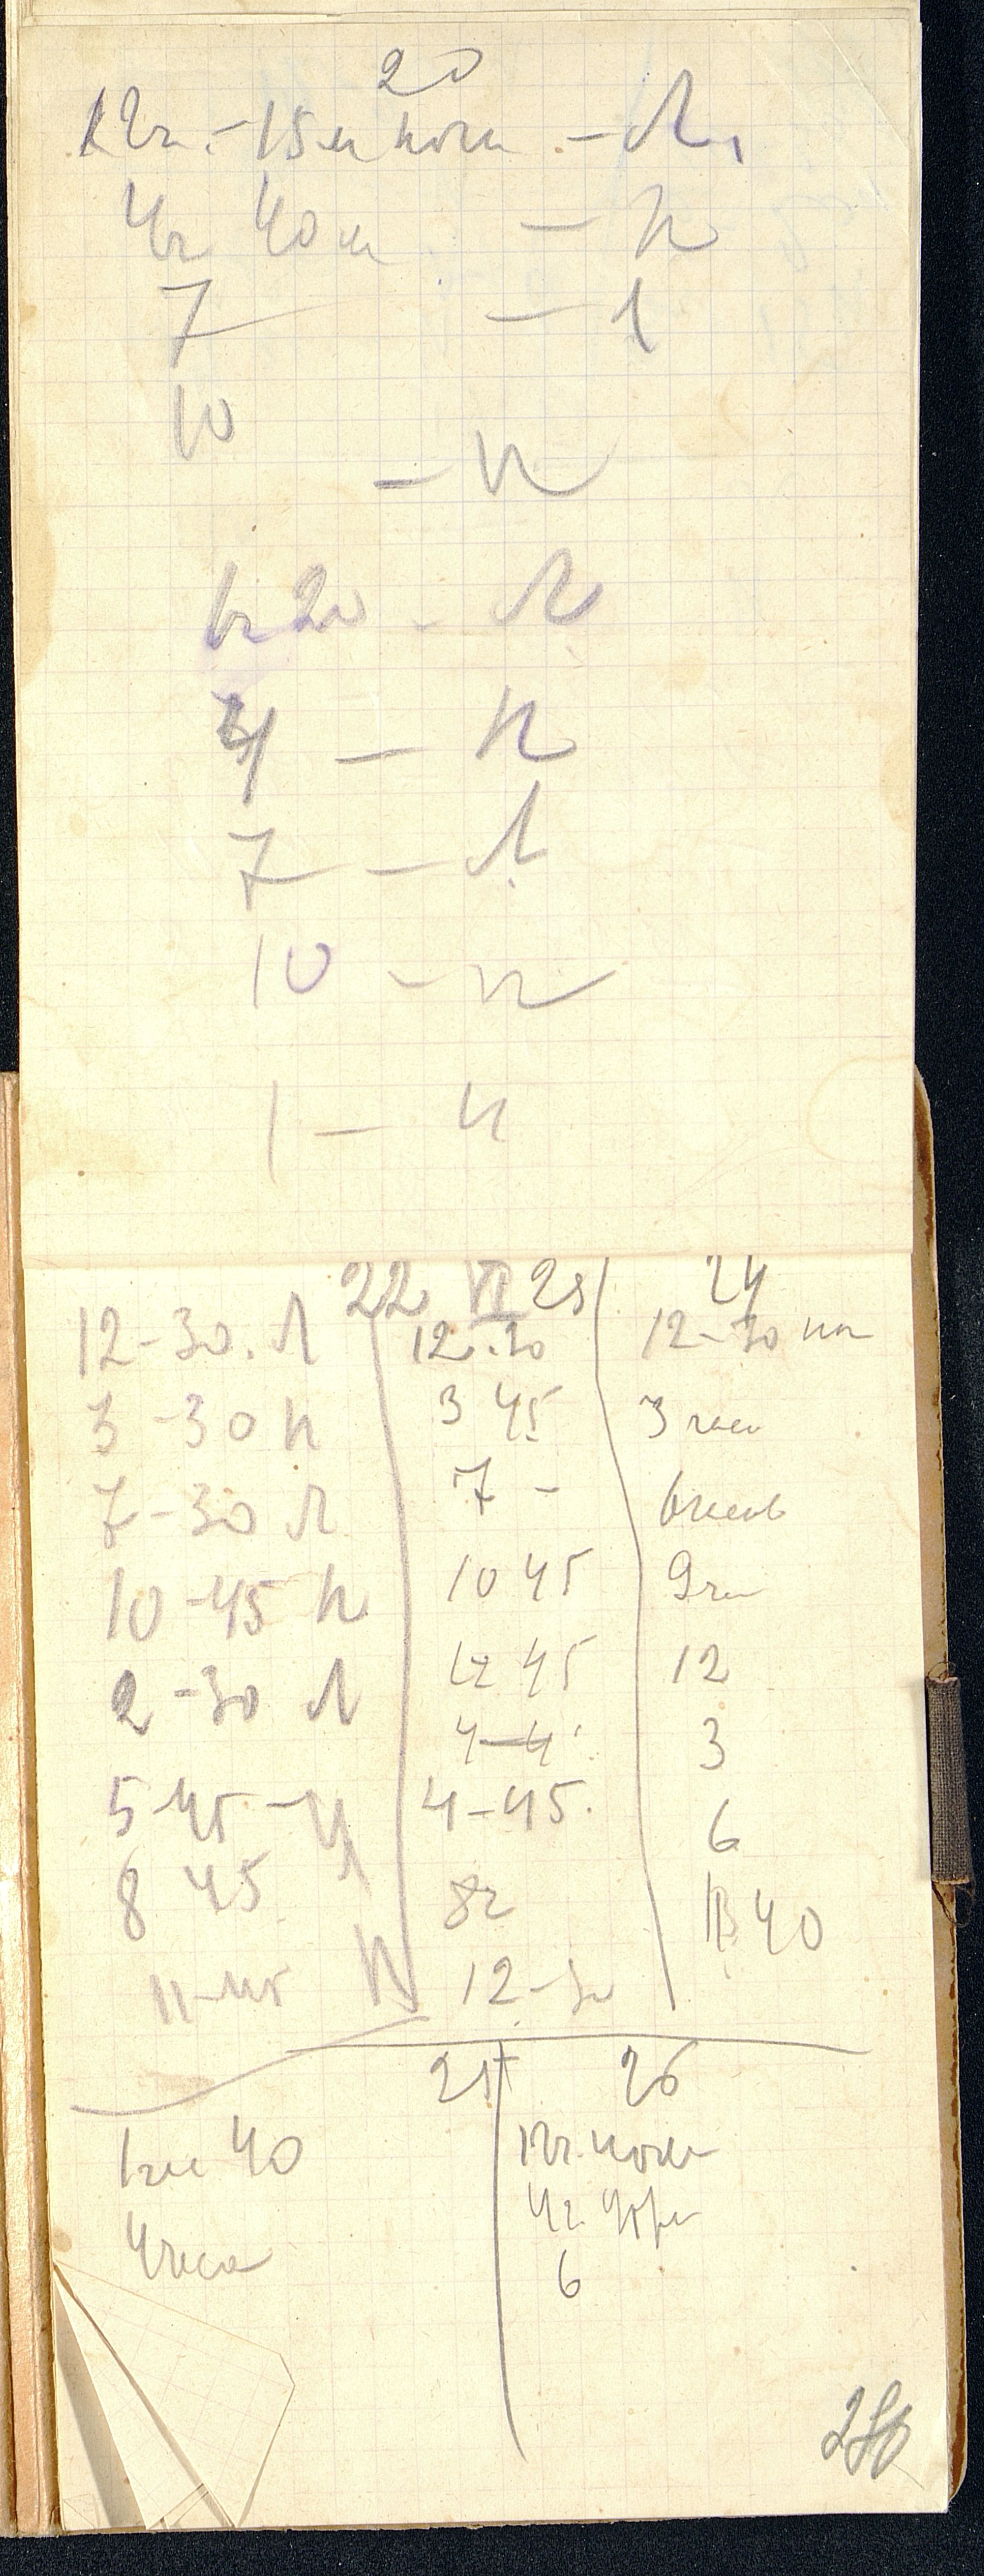 20
12ч. - 15м ночи - Л.
4ч 40м - п
7 - Л
10
- п
1ч 20 - Л
4 - п
7 - Л
10 - п
1 - п
22 VI 23 24
12-30. Л
3-30 п
7-30 Л
10-45 п
2-30 Л
5-45 - 
8 45
11-45 П
12.30
3 45
7 -
10 45
45
4-4
4-45.
8ч
12-30
12-30
3 час
6 часов
9ч
12
3
6
40
25
1ч 40
4 часа
26
12ч. ночи
4ч. утра
6